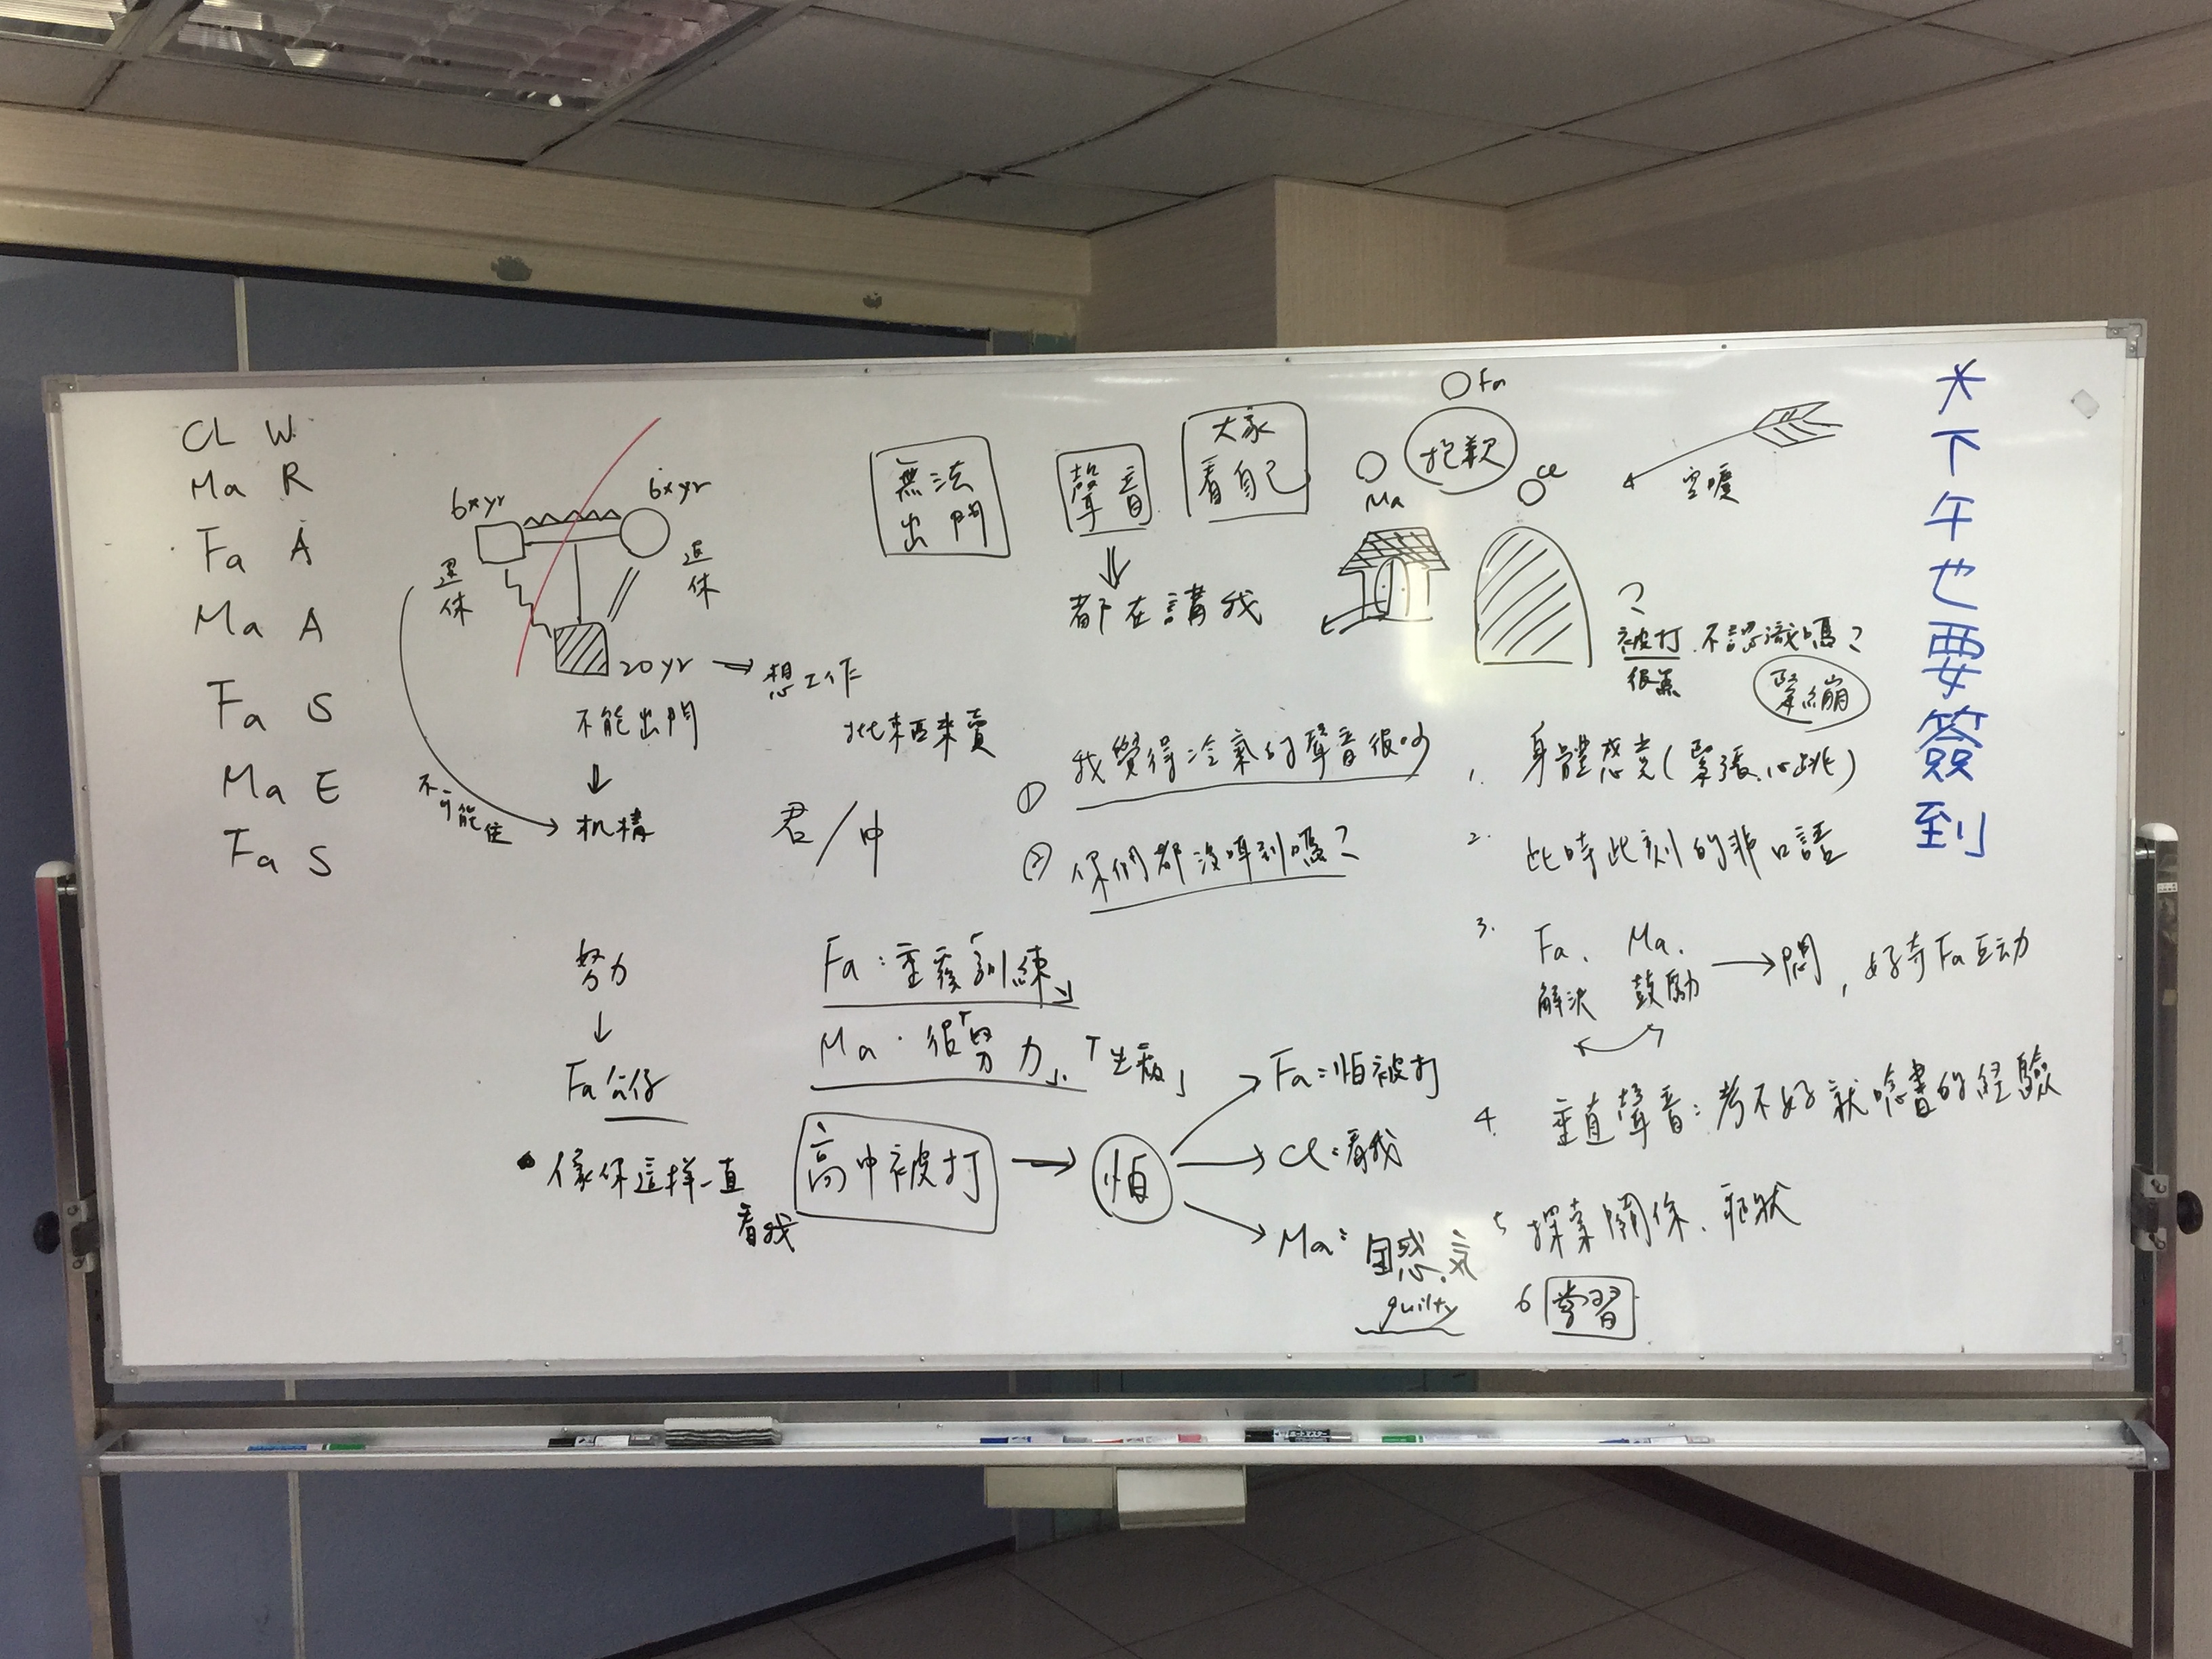 CL W
Ma R
Fa A
Ma A
Fa S
Ma E
Fa S
6xyr
6xyr
退休
退休
20yr → 想工作
批東西來賣
不能出門
↓
机構
不可能住
君/中
無法
出門
聲音
⇓
都在講我
大家
看自己
Fa
抱歉
Ma
cl
?
被打 不認識嗎?
很煎
緊繃
① 我覺得冷氣的聲音很吵
② 你們都沒聽到嗎?
努力
↓
Fa
• 像你這樣一直
看我
Fa:重複「訓練」
Ma:很「努力」、「生病」
高中被打 → 怕
Fa:怕被打
cl:看我
Ma:
guilty
1. 身體感覺(緊張、心跳)
2. 此時此刻的非口語
3. Fa、 Ma、
解決 鼓勵 → 問,好奇Fa互动
4. 垂直聲音:考不好就唸書的經驗
5 探索關係、症狀
6 学習
*下午也要簽到